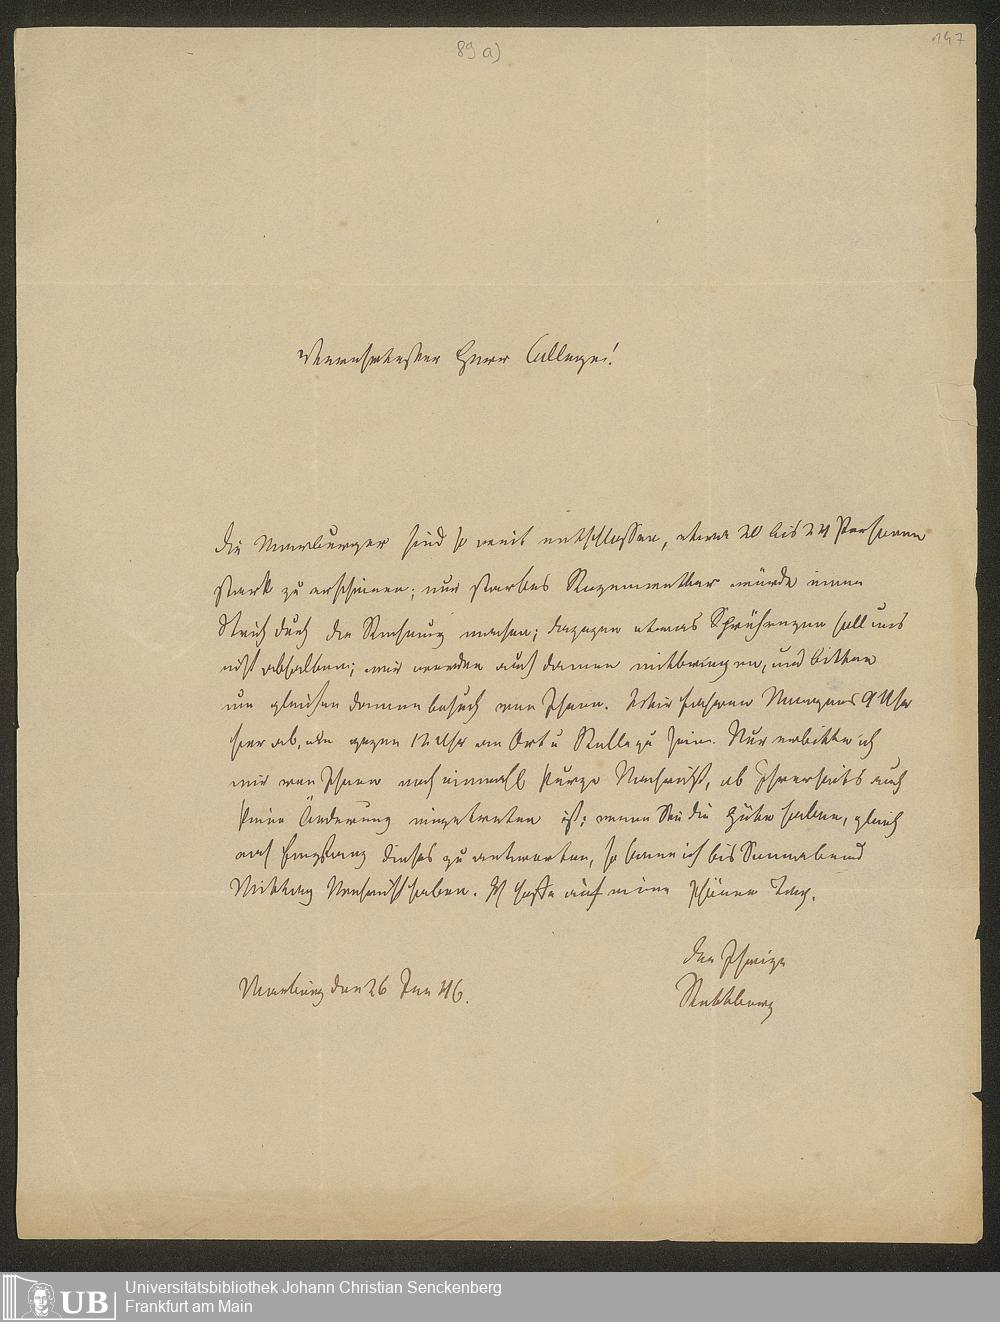 89 a)
147
Verehrtester Herr College!
Die Marburger sind so weit entschlossen, etwa 20 bis 24 Personen
stark zu erscheinen; nur starkes Regenwetter würde einen
Strich durch die Rechnung machen; dagegen etwas Sprühregen soll uns
nicht abhalten; wir werden auch Damen mitbringen, und bitten
um gleichen Damenbesuch von Ihnen. Wir fahren Morgens 9 Uhr
hier ab, um gegen Uhr an Ort u Stelle zu sein. Nur erbitte ich
mir von Ihnen noch einmahl kurze Nachricht, ob Ihrerseits auch
keine Änderung eingetreten ist; wenn Sie die Güte haben, gleich
nach Empfang dieses zu antworten, so kann ich bis Sonnabend
Mittag Nachricht haben. Ich hoffe auf einen schönen Tag.
Der Ihrige
Marburg den 26 46.
Rettberg
Universitätsbibliothek Johann Christian Senckenberg
Frankfurt am Main
UB